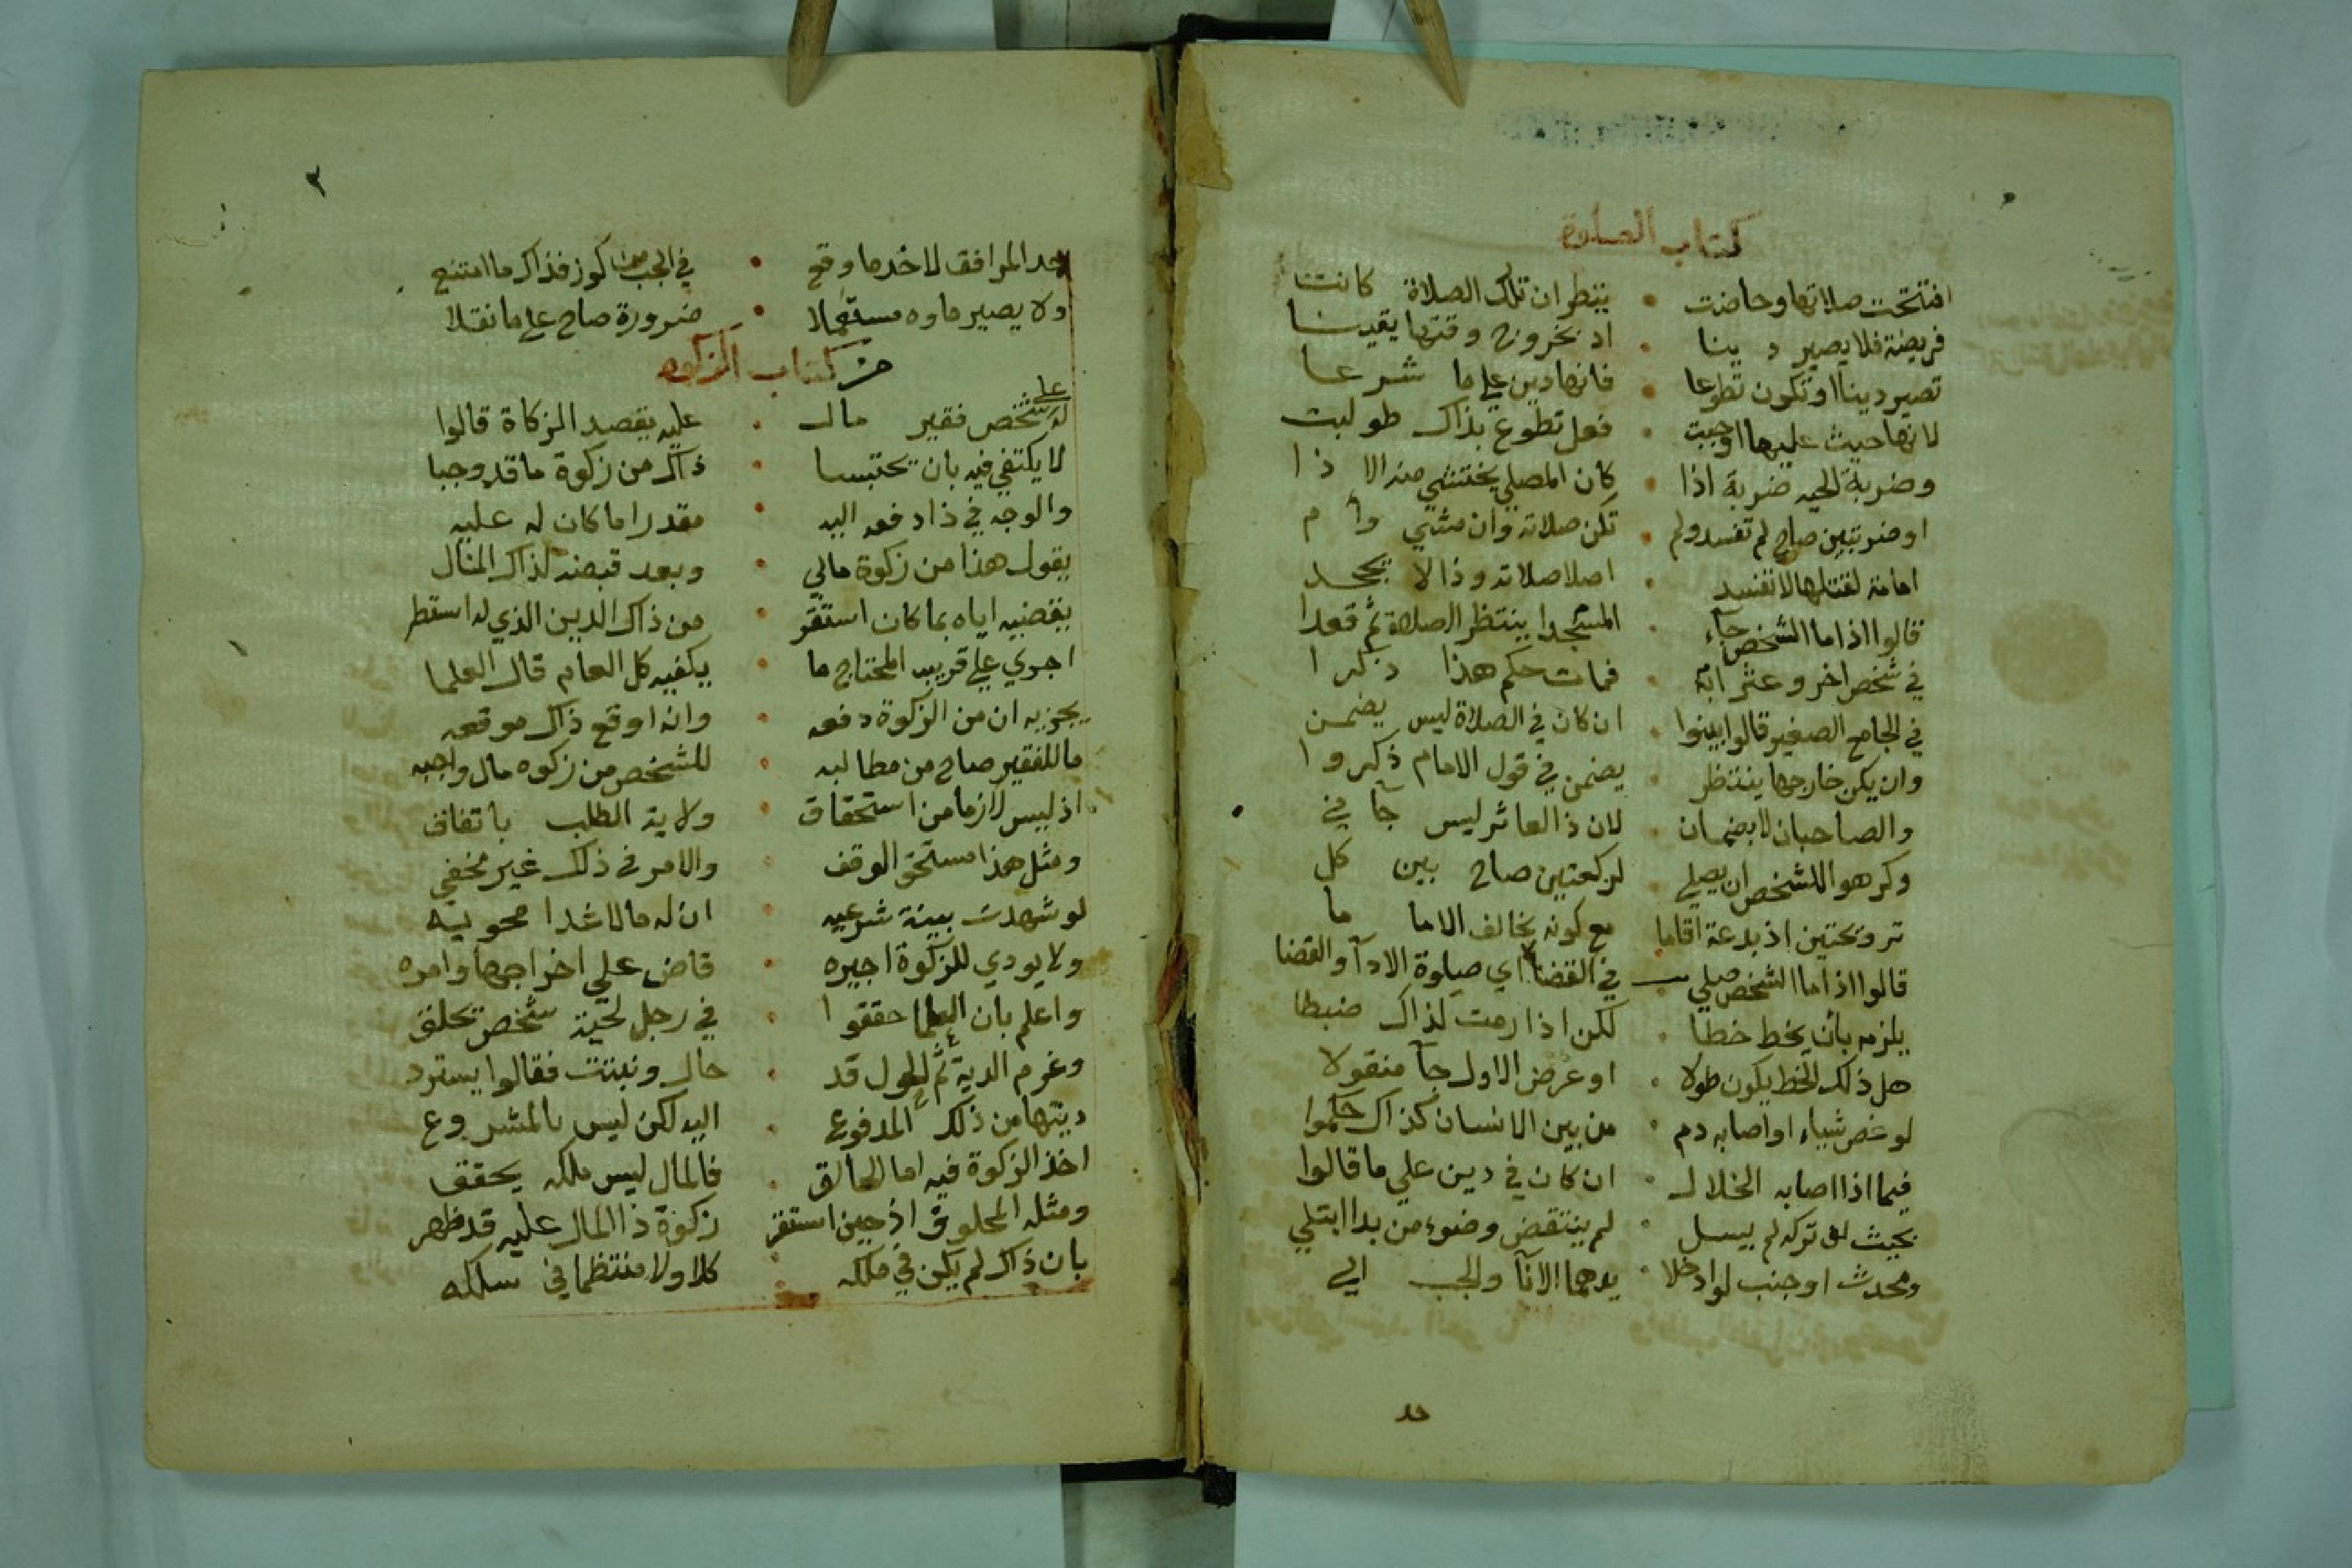 كتاب الصلوة
افتتحت صلاتها وحاضت • ينظر ان تلك الصلاة كانت
فريضة فلا يصير دينا • اد نحرونه وقتها يقينا
تصير دينا او تكون تطوعا • فانها دين علي ما شرعا
لانها حيث عليها اوجبت • فعل تطوع بذاك طولبت
وضربة الحيه ضربة اذا • كان المصلي يختشي منه الاذا
او ضربتين صاح لم تفسد ولم • تكن صلاته وان مشي وأم
امامة لقتلها لا تفسد • اصلا صلاته وذا لا يجحد
قالوا اذا ما الشخص جاء • المسجدا ينتظر الصلاة ثم قعدا
في شخص اخر وعثر انه • فمات حكم هذا ذكرا
في الجامع الصغير قالوا بينوا • ان كان في الصلاة ليس يضمن
وان يكن خارجها ينتظر • يضمن في قول الامام ذكروا
والصاحبان لا يضمان • لان ذا العاثر ليس جآ في
وكرهوا للشخص ان يصلي • لركعتين صاح بين كل
ترويحتين اذ بدعة اقاما • مع كونه يخالف الاماما
قالوا اذا ما الشخص صلي في القضا • اي صلوة الادآ والقضا
يلزمه بأن يخط خطا • لكن اذا رمت لذاك ضبطا
هل ذلك الخط يكون طولا • او عرض الاول جآ منقولا
لو عض شياء او اصابه دم • من بين الاسنان كذاك حكموا
فيما اذا اصابه الخلال • ان كان في دين علي ما قالوا
بحيث لو تركه لم يسل • لم ينتقض وضوء من بدا ابتلي
ومحدث او جنب لو ادخلا • يدهما الانآ والجب الي
حد
٢
حد المرافق لاخد ما وقع • في الجب من كوز فذاك ما امتنع
ولا يصير ماوه مستعملا • ضرورة صاح علي ما نقلا
من كتاب الزكوه
له علي شخص فقير مال • عليه يقصد الزكاة قالوا
لا يكتفي فيه بان يحتسبا • ذاك من زكوة ما قد وجبا
والوجه في ذا دفعه اليه • مقدرا ما كان له عليه
يقول هذا من زكوة مالي • وبعد قبضه لذاك المنال
يقضيه اياه بما كان استقر • من ذاك الدين الذي له استقطر
اجري علي قريبه المحتاج ما • يكفيه كل العام قال العلما
يجزيه ان من الزكوة دفعه • وانه اوقع ذاك موقعه
ما للفقير صاح من مطالبه • للشخص من زكوه مال واجبه
اذ ليس لازما من استحقاق • ولاية الطلب باتفاق
ومثل هذا مستحق الوقف • والامر في ذلك غير مخفي
لو شهدت بينة شرعيه • ان له مالا غدا محويه
ولا يودي للزكوة اجبره • قاض علي اخراجها وامره
واعلم بان العلما حققوا • في رجل لحية شخص يحلق
وغرم الدية ثم الحول قد • حال ونبتت فقالوا يسترد
ديتها من ذلك المدفوع • اليه لكن ليس بالمشروع
اخذ الزكوة فيه اما الحالق • فالمال ليس ملكه يحقق
ومثله المحلوق اذ حين استقر • زكوة ذا المال عليه قد ظهر
بان ذاك لم يكن في ملكه • كلا ولا منتظما في سلكه